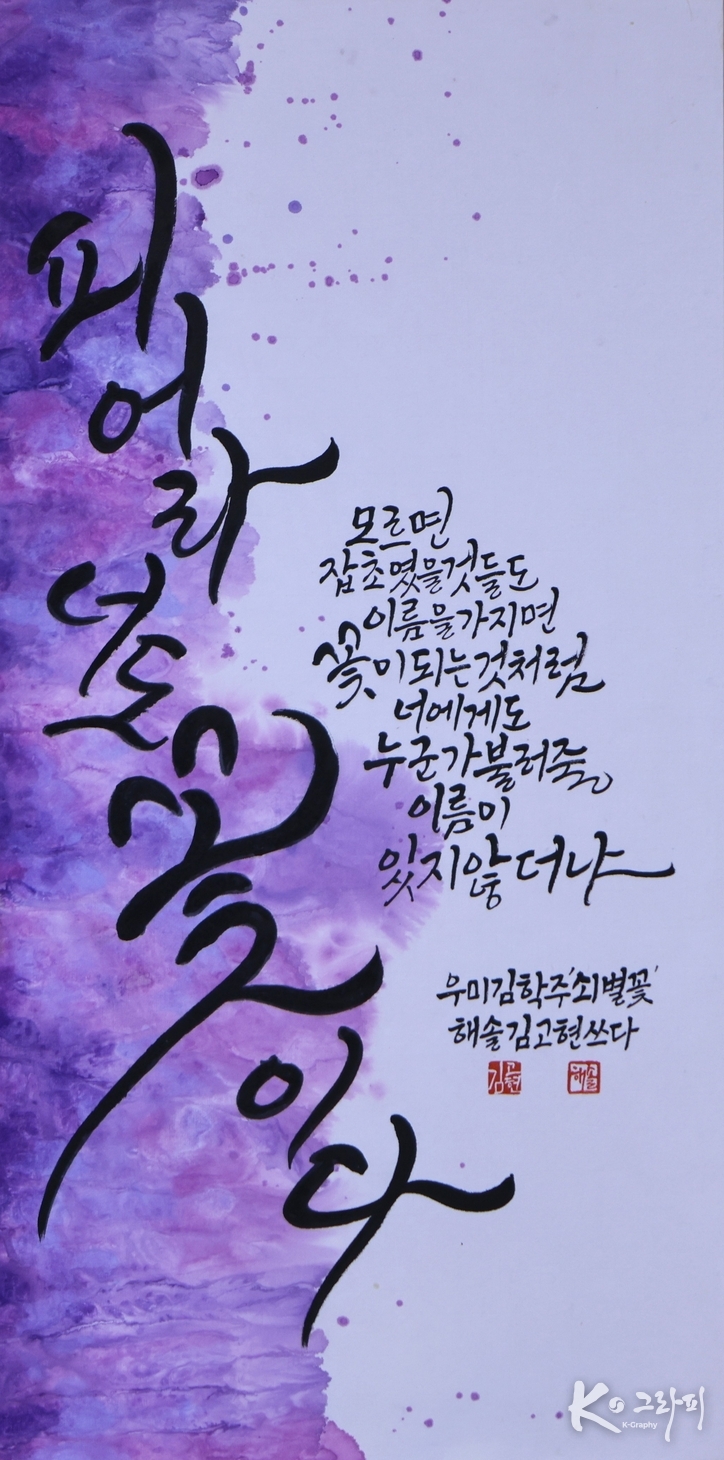 피어라
너도
꽃이다
모르면
잡초였을것들도
이름을가지면
꽃이되는것처럼
너에게도
누군가불러줄
이름이
있지않더냐
우미김학주'쇠별꽃'
해솔김고현쓰다
김고현
해솔
K 그라피
K-Graphy